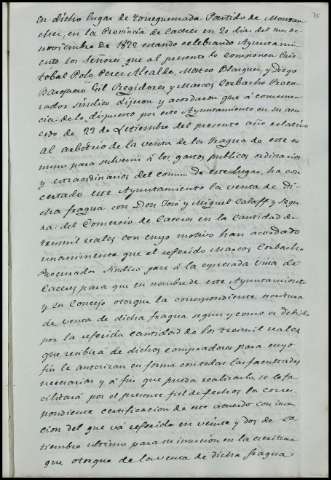 75
en dicho lugar de Torrequemada Partido de Montan
chez, en la Provincia de Caceres en 20 dias del mes de
noviembre de 1872 estando celebrando Ayuntami
ento los Señores que al presente lo componen Cris
tobal Polo Perez Alcalde, Mateo Blazquez, y Diego
Gil Regidores y Marcos Corbacho Procu
rador Sindico dijeron y acordaron que a consecuen
cia de lo dispuesto por este Ayuntamiento en su acu
erdo de 22 de Setiembre del presente año relativo
al arbitrio de la venta de la Fragua de este co
mun para subvenir á los gastos publicos ordinarios
y extraordinarios del comun de este lugar, ha con
certado este Ayuntamiento la venta de di
cha fragua con Don José y Miguel Calaff y
del Comercio de Caceres en la cantidad de
tres mil reales con cuyo motivo han acordado
unanimemente que el referido Marcos Corbacho
Procurador Sindico pase á la expresada Villa de
Caceres para que en nombre de este Ayuntamiento
y su Concejo otorgue la correspondiente escritura
de venta de dicha fragua segun y como es debido
por la referida cantidad de los tres mil reales
que recibirá de dichos compradores para cuyo
fin le autorizan en forma con todas las facultades
necesarias y á fin que pueda realizarlo se le fa
cilitará por el presente fiel de fechos la corres
pondiente certificacion de este acuerdo con incer
cion del que va referido en veinte y dos de Se
tiembre ultimo para su insercion en la escritura
que otorgue de la venta de dicha fragua.